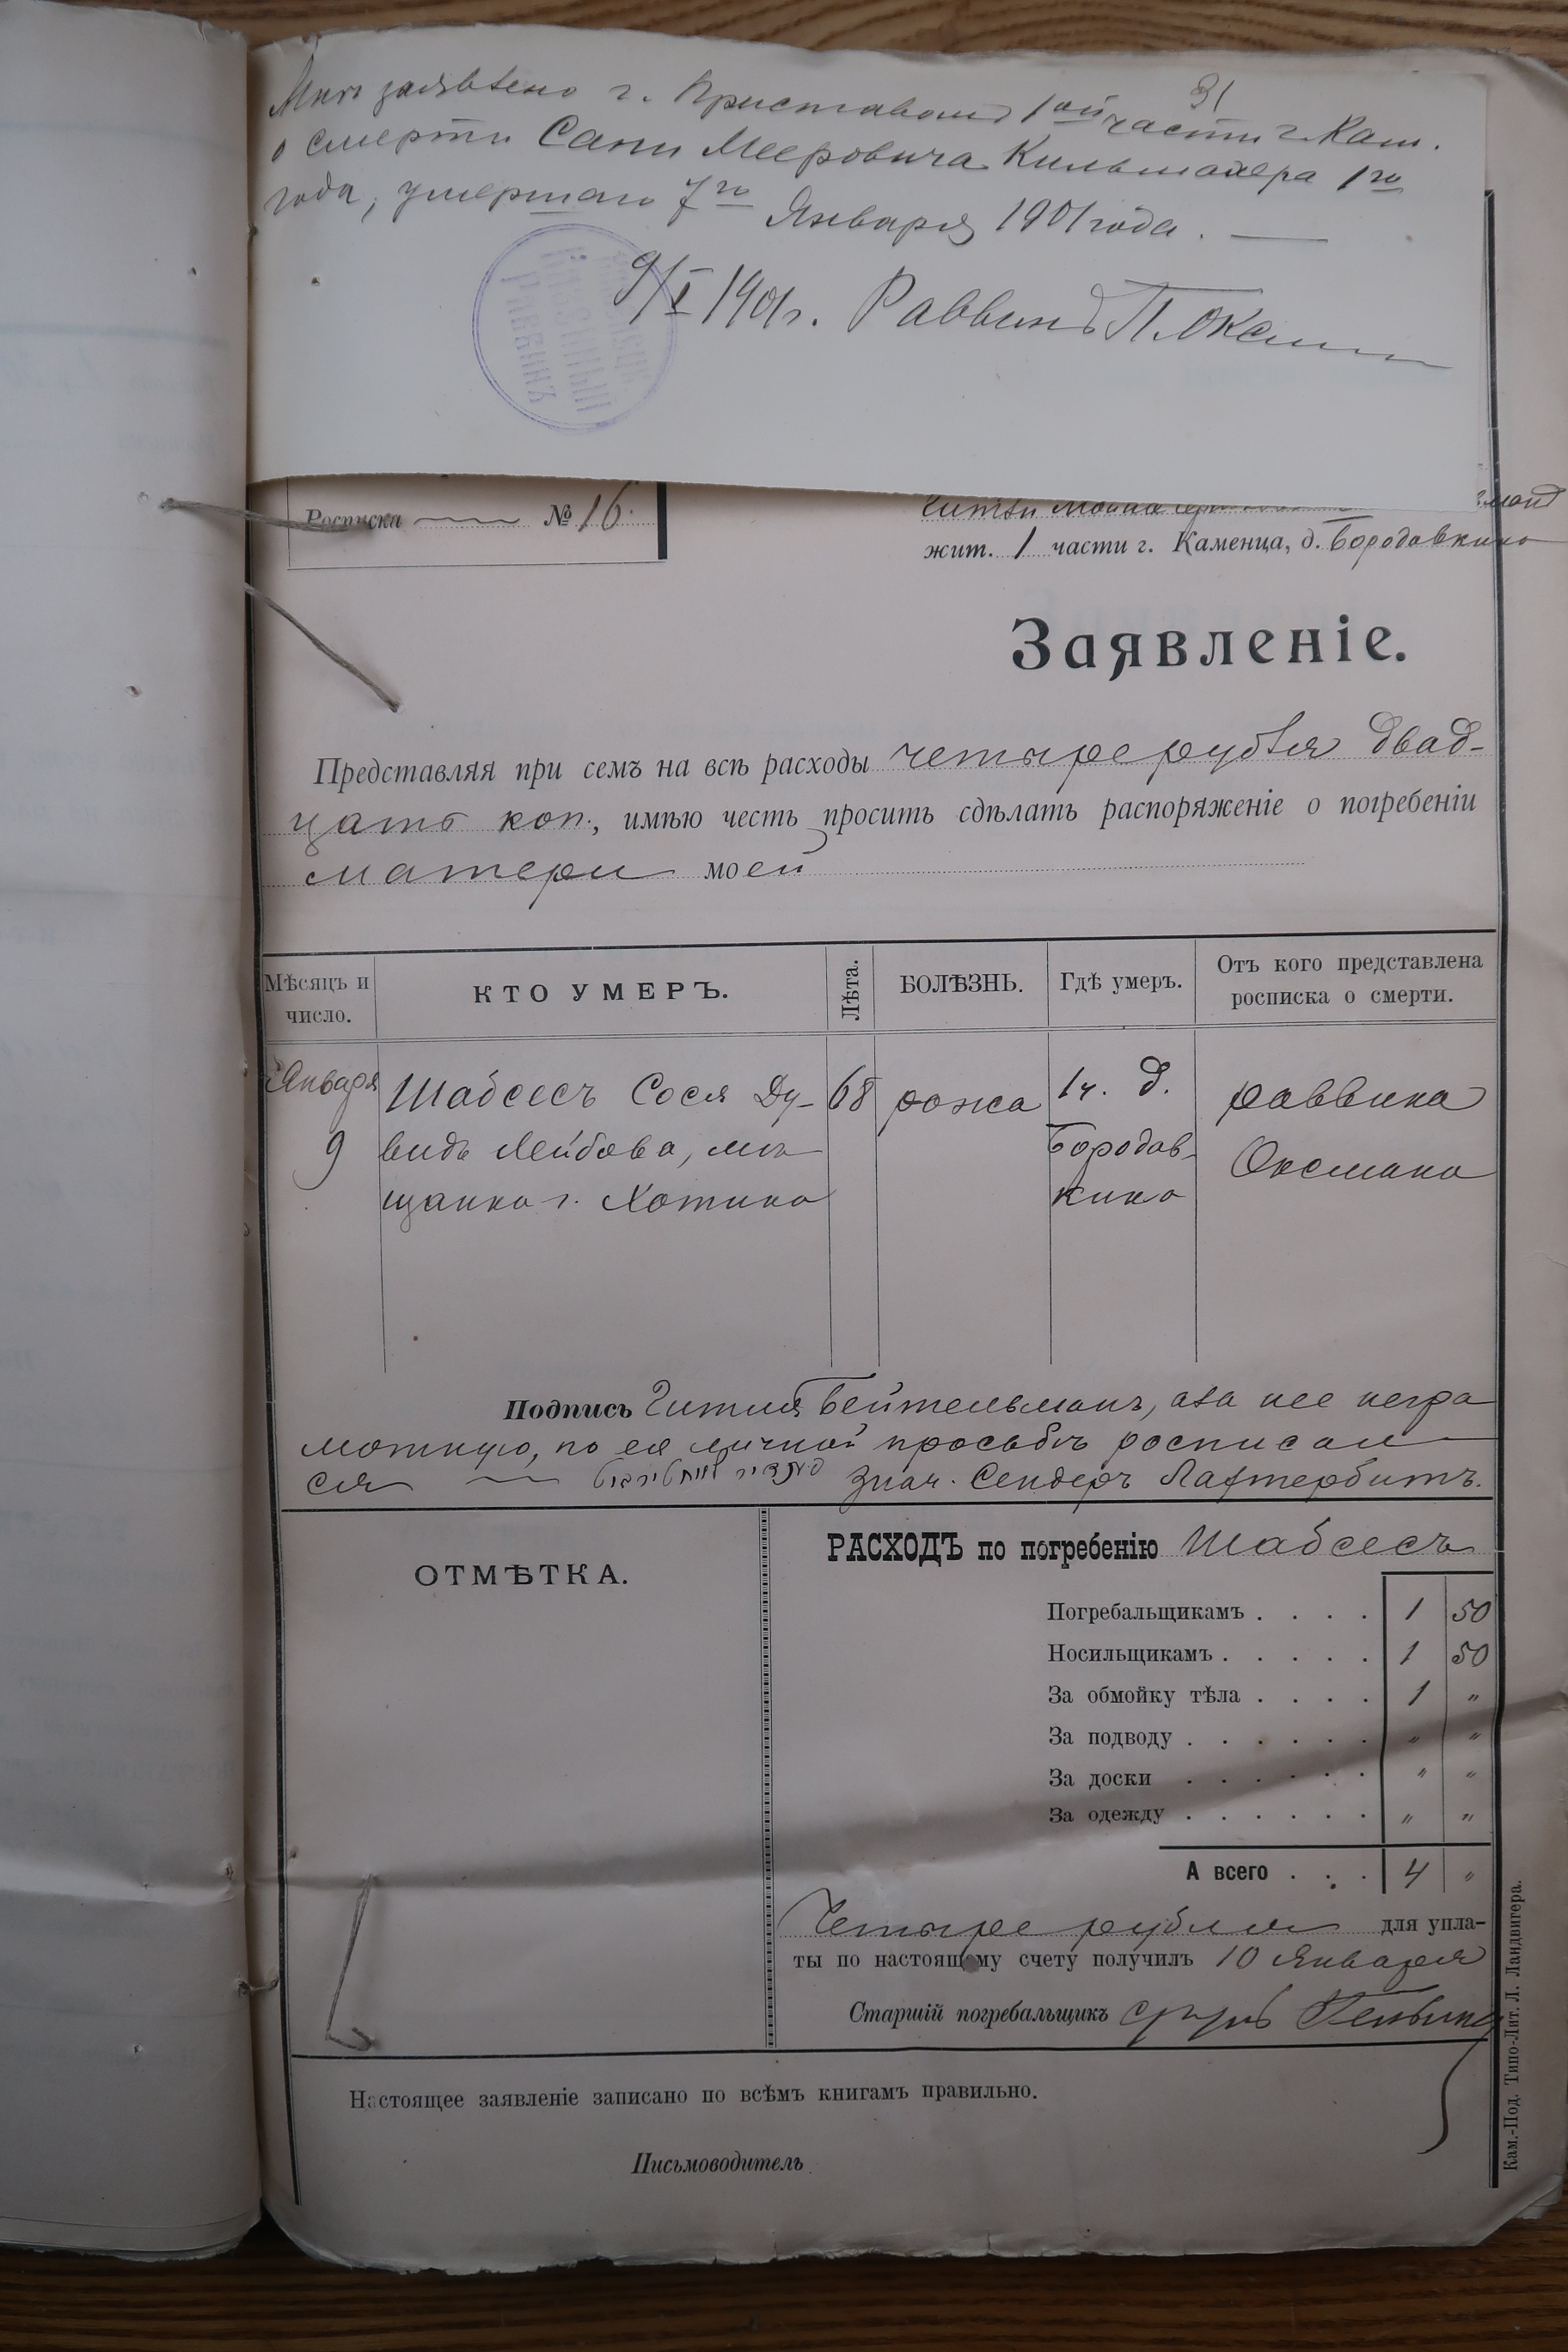 31
Мнѣ заявлено г. Приставомъ 1ой части г. Кам.
о смерти Сани Мееровича Кильмахера 1го
года, умершаго 7го Января 1901 года. —
9/I 1901 г. Раввинъ П. Оксман
РАВВИНЪ
Росписка — № 16.
жит. 1 части г. Каменца, д. Бородавкина
Заявленіе.
Представляя при семъ на всѣ расходы четыре рубля двад-
цать коп., имѣю честь просить сдѣлать распоряженіе о погребеніи
матери моей
Мѣсяцъ и число.
КТО УМЕРЪ.
Лѣта.
БОЛѢЗНЬ.
Гдѣ умеръ.
Отъ кого представлена росписка о смерти.
Января 9
Шабсесъ Сося Ду-
видъ Лейбова, мѣ-
щанка г. Хотина
68
рожа
1 ч. д.
Бородав-
кина
раввина
Оксмана
Подпись Гитля Бейтельманъ, а за нее негра
мотную, по ея личной просьбѣ росписал
ся — знач. Сендеръ Лахтербитъ.
ОТМѢТКА.
РАСХОДЪ по погребенію Шабсесъ
Погребальщикамъ . . . . 1 50
Носильщикамъ . . . . . 1 50
За обмойку тѣла . . . . 1 "
За подводу . . . . . . " "
За доски . . . . . . " "
За одежду . . . . . . " "
А всего . . . 4 "
Четыре рубля для упла-
ты по настоящему счету получилъ 10 Января
Старшій погребальщикъ
Настоящее заявленіе записано по всѣмъ книгамъ правильно.
Письмоводитель
Кам.-Под. Типо-Лит. Л. Ландвигера.